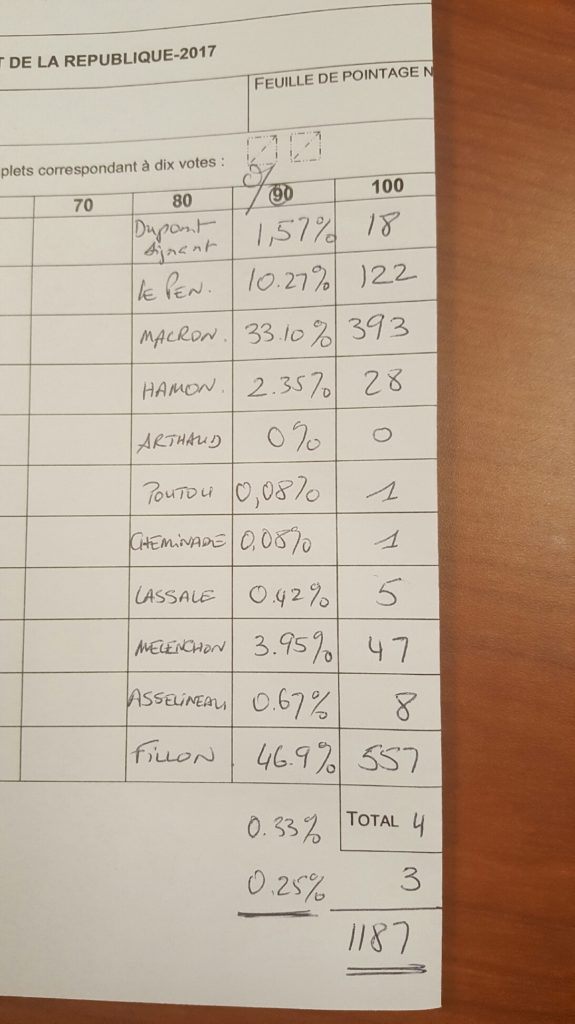 T DE LA REPUBLIQUE-2017
FEUILLE DE POINTAGE N
plets correspondant à dix votes :
%
70 80 90 100
Dupont Aignent 1,57% 18
LE PEN. 10.27% 122
MACRON. 33.10% 393
HAMON. 2.35% 28
ARTHAUD 0% 0
POUTOU 0,08% 1
CHEMINADE 0,08% 1
LASSALE 0.42% 5
MELENCHON 3.95% 47
ASSELINEAU 0.67% 8
FILLON 46.9% 557
0.33% TOTAL 4
0.25% 3
1187